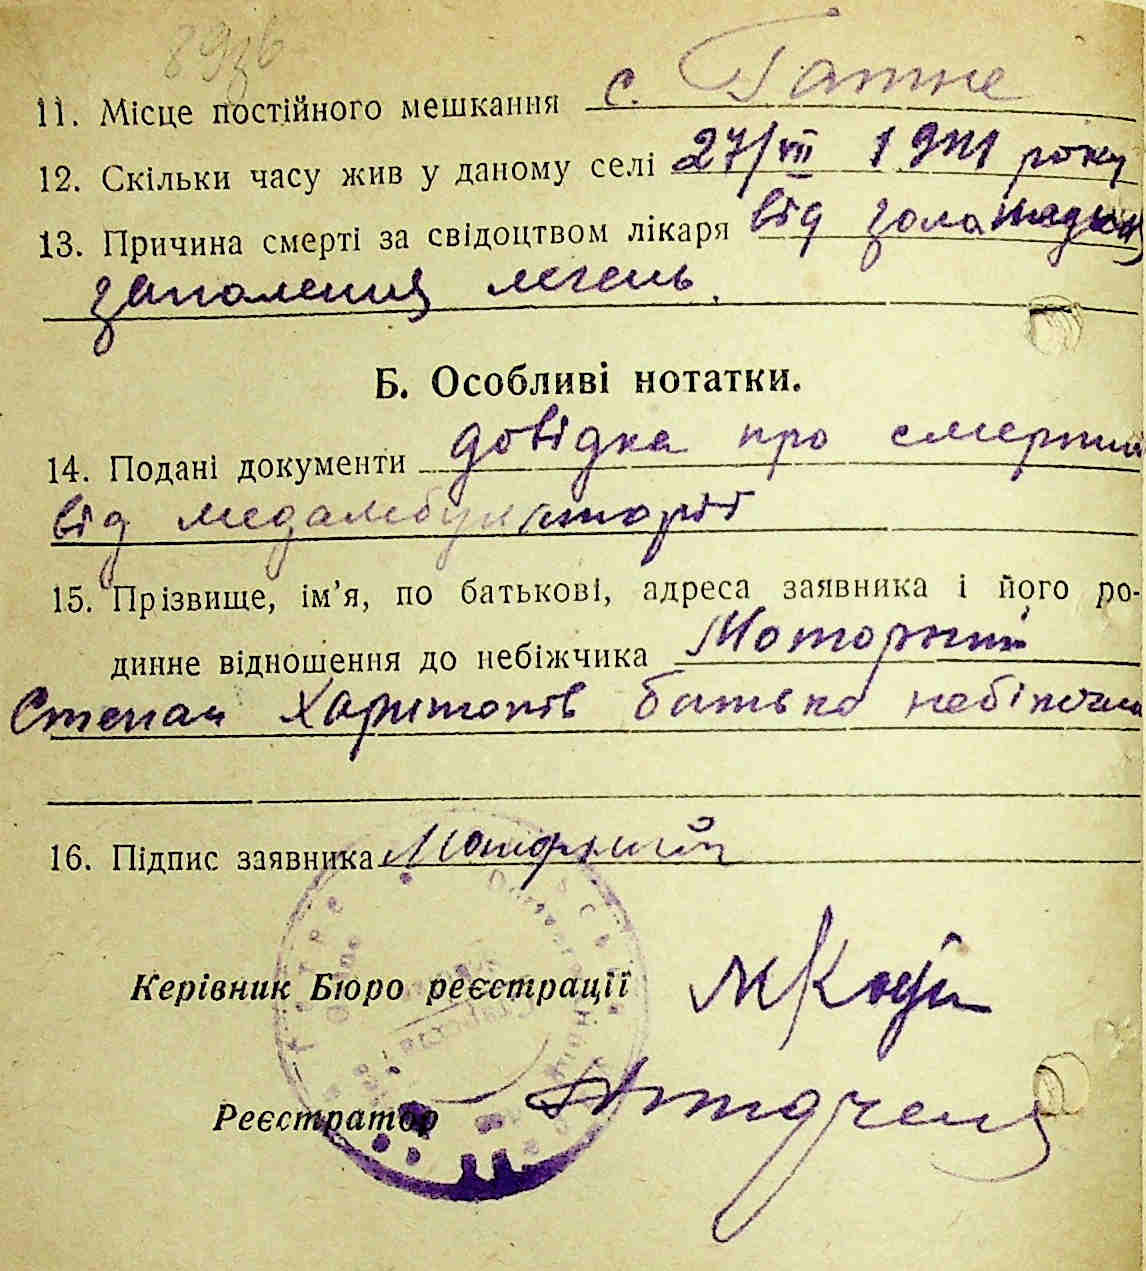 89зв
11. Місце постійного мешкання с. Гатне
12. Скільки часу жив у даному селі 27/VII 1941 року
13. Причина смерті за свідоцтвом лікаря від
запалення легень.
Б. Особливі нотатки.
14. Подані документи довідка про смерть
від медамбулаторії
15. Прізвище, ім’я, по батькові, адреса заявника і його ро-
динне відношення до небіжчика Моторний
Степан Харитонів батько небіжчика
16. Підпис заявника Моторний
Керівник Бюро реєстрації
Реєстратор